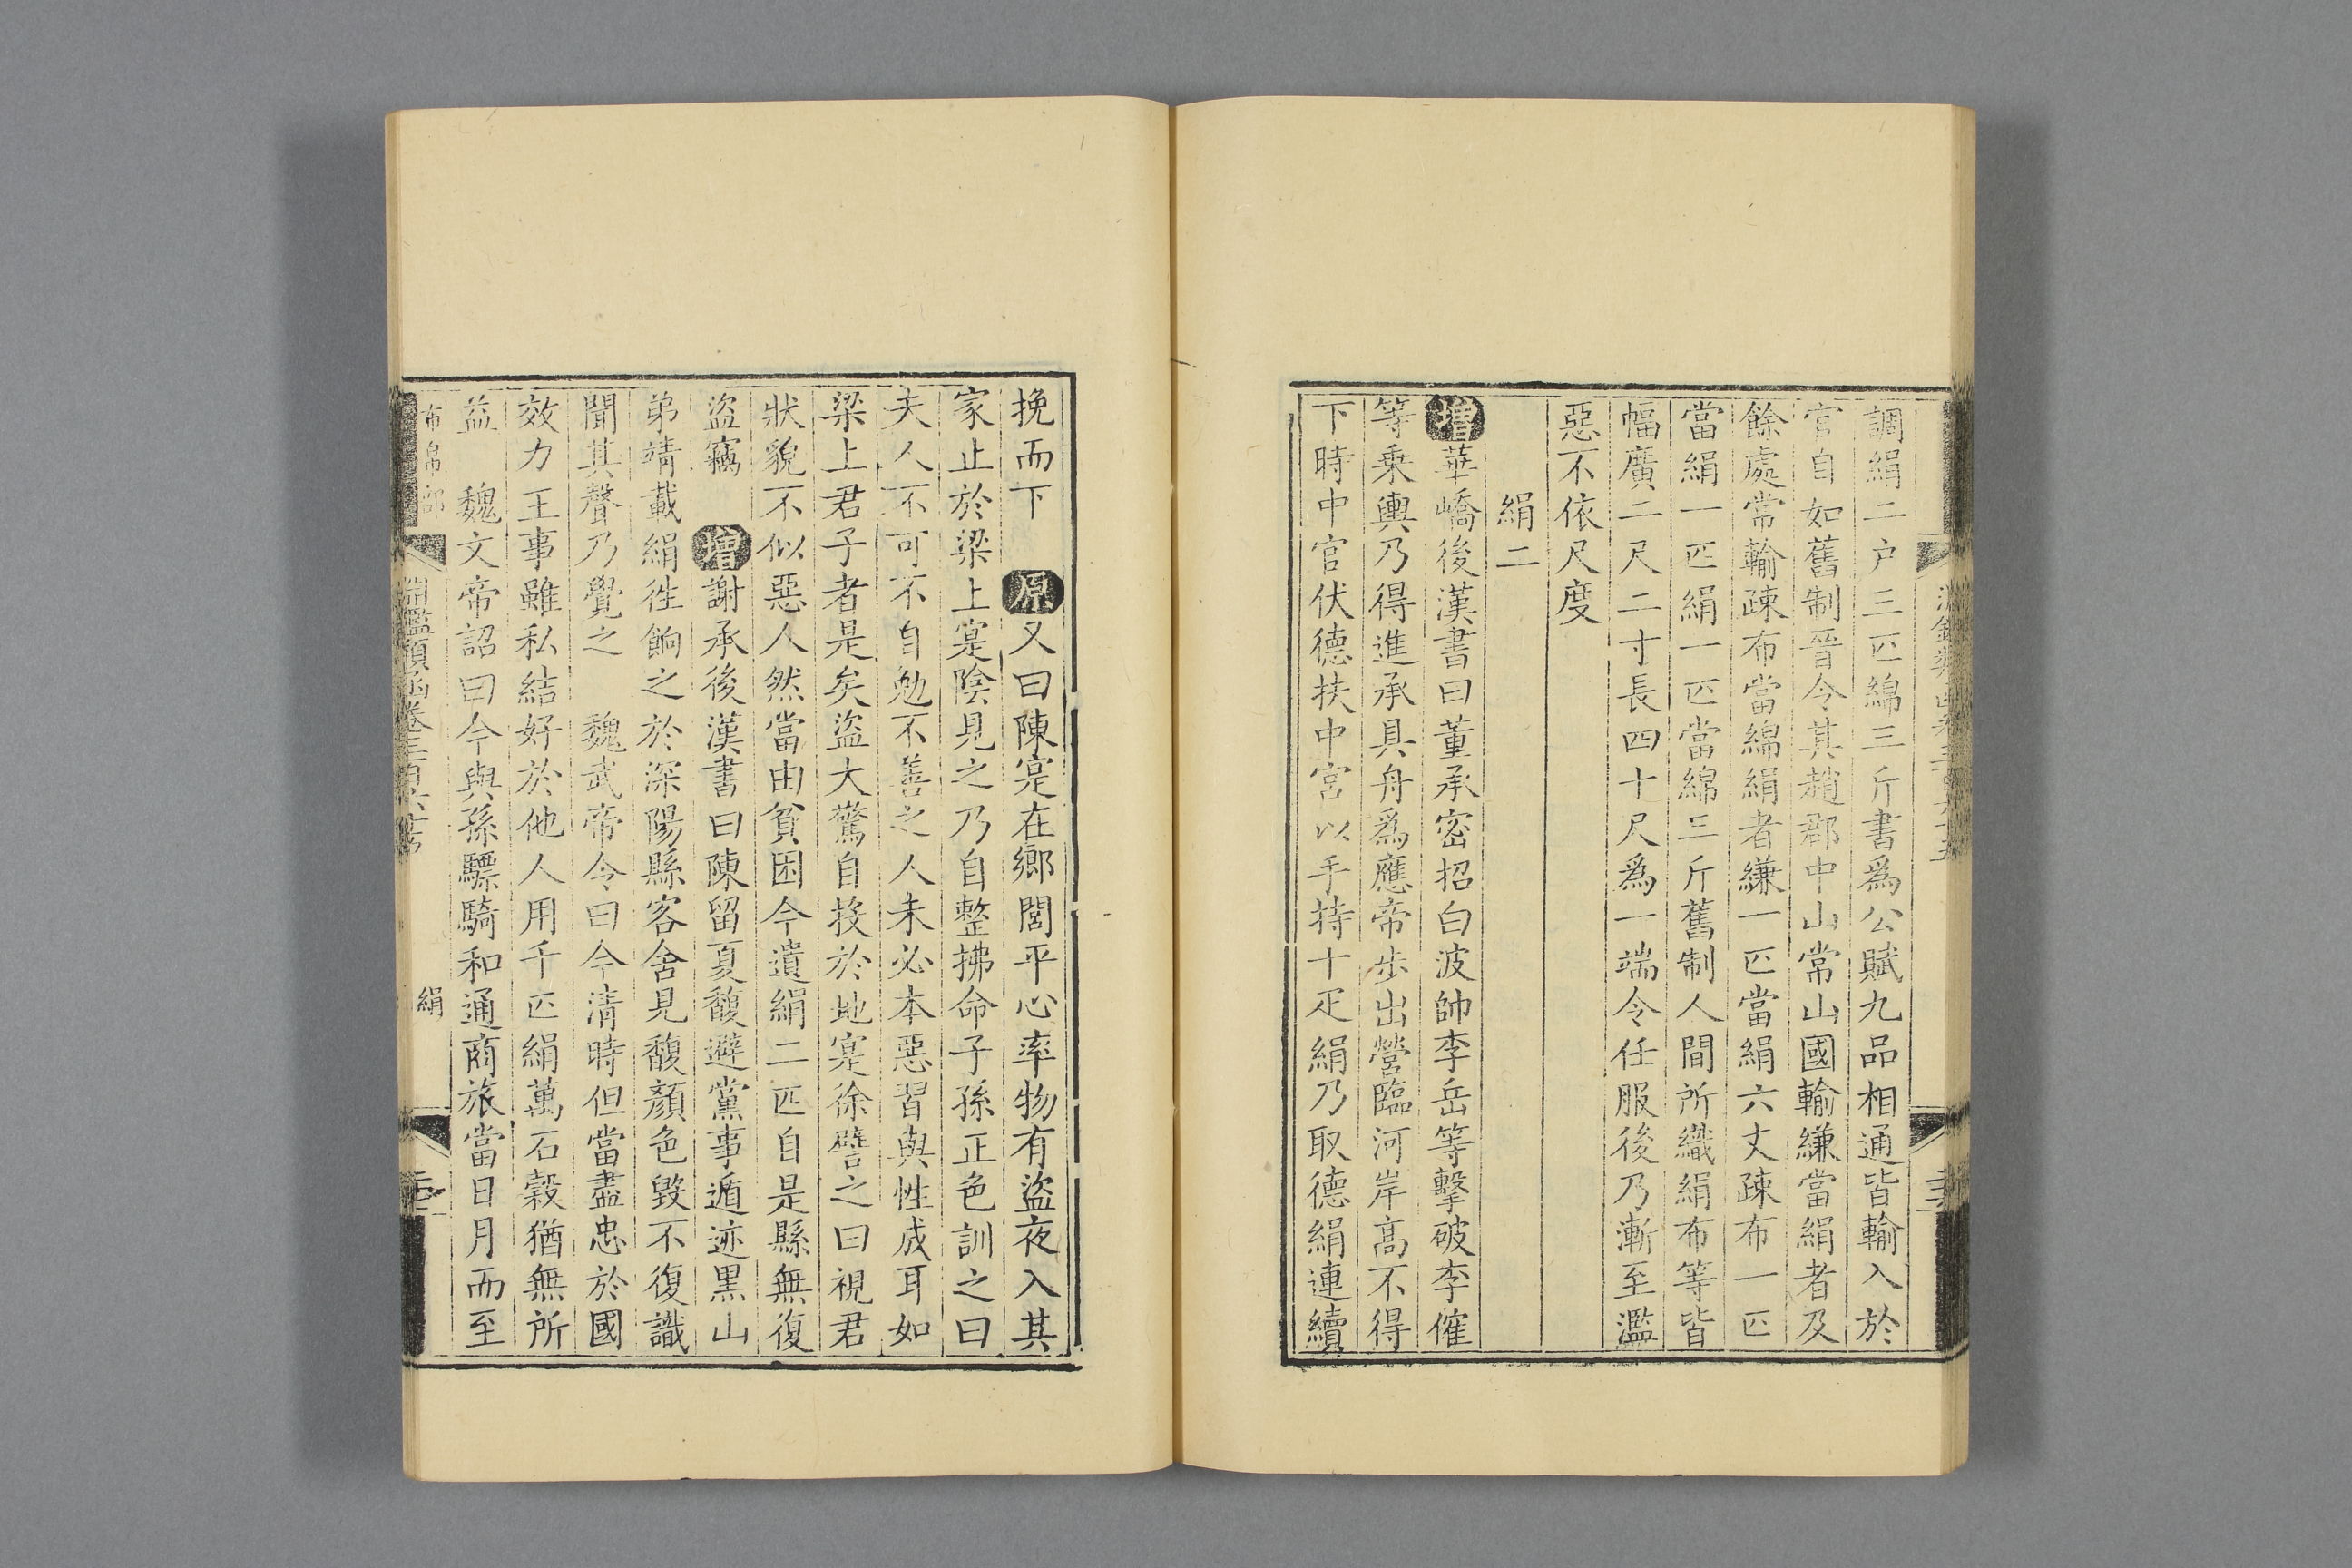 調絹二户三匹綿三斤書爲公賦九品相通皆輸入於
官自如舊制晉令其趙郡中山常山國輸縑當絹者及
餘處常輸疎布當綿絹者縑一匹當絹六丈疎布一匹
當絹一匹絹一匹當綿三斤舊制人間所織絹布等皆
幅廣二尺二寸長四十尺爲一端令任服後乃漸至濫
惡不依尺度
絹二
增華嶠後漢書曰董承密招白波帥李岳等擊破李傕
等乘輿乃得進承具舟爲應帝步出營臨河岸高不得
下時中官伏德扶中宮以手持十疋絹乃取德絹連續
挽而下 原又曰陳寔在鄉閭平心率物有盜夜入其
家止於梁上寔陰見之乃自整拂命子孫正色訓之曰
夫人不可不自勉不善之人未必本惡習與性成耳如
梁上君子者是矣盜大驚自投於地寔徐譬之曰視君
狀貌不似惡人然當由貧困今遺絹二匹自是縣無復
盜竊 增謝承後漢書曰陳留夏馥避黨事遁迹黑山
弟靖載絹徃餉之於深陽縣客舍見馥顏色毀不復識
聞其聲乃覺之 魏武帝令曰今清時但當盡忠於國
效力王事雖私結好於他人用千匹絹萬石穀猶無所
益 魏文帝詔曰今與孫驃騎和通商旅當日月而至
布帛部 淵鑑類函卷三百六 絹